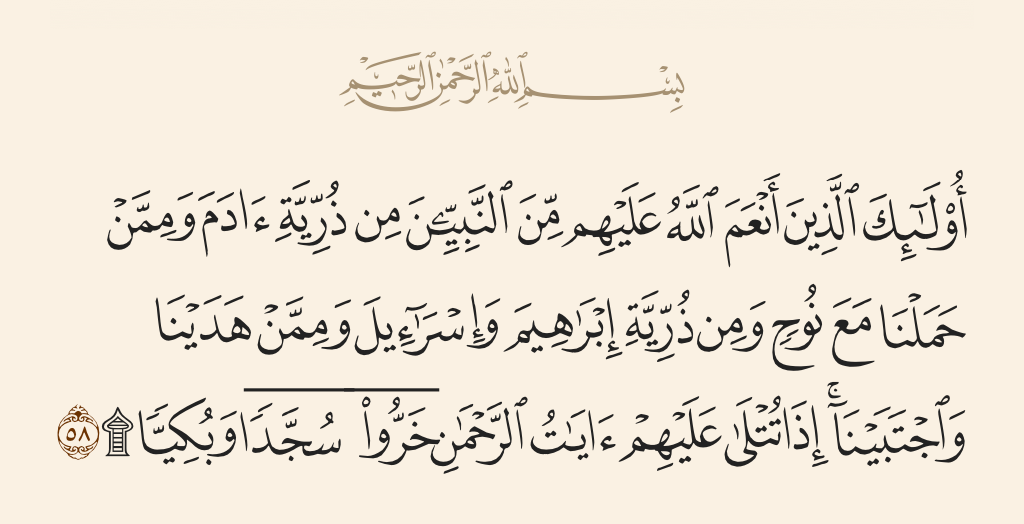 بِسْمِ ٱللَّهِ ٱلرَّحْمَٰنِ ٱلرَّحِيمِ
أُو۟لَٰٓئِكَ ٱلَّذِينَ أَنْعَمَ ٱللَّهُ عَلَيْهِم مِّنَ ٱلنَّبِيِّۦنَ مِن ذُرِّيَّةِ ءَادَمَ وَمِمَّنْ
حَمَلْنَا مَعَ نُوحٍ وَمِن ذُرِّيَّةِ إِبْرَٰهِيمَ وَإِسْرَٰٓءِيلَ وَمِمَّنْ هَدَيْنَا
وَٱجْتَبَيْنَآ ۚ إِذَا تُتْلَىٰ عَلَيْهِمْ ءَايَٰتُ ٱلرَّحْمَٰنِ خَرُّوا۟ سُجَّدًا وَبُكِيًّا ۩ ٥٨